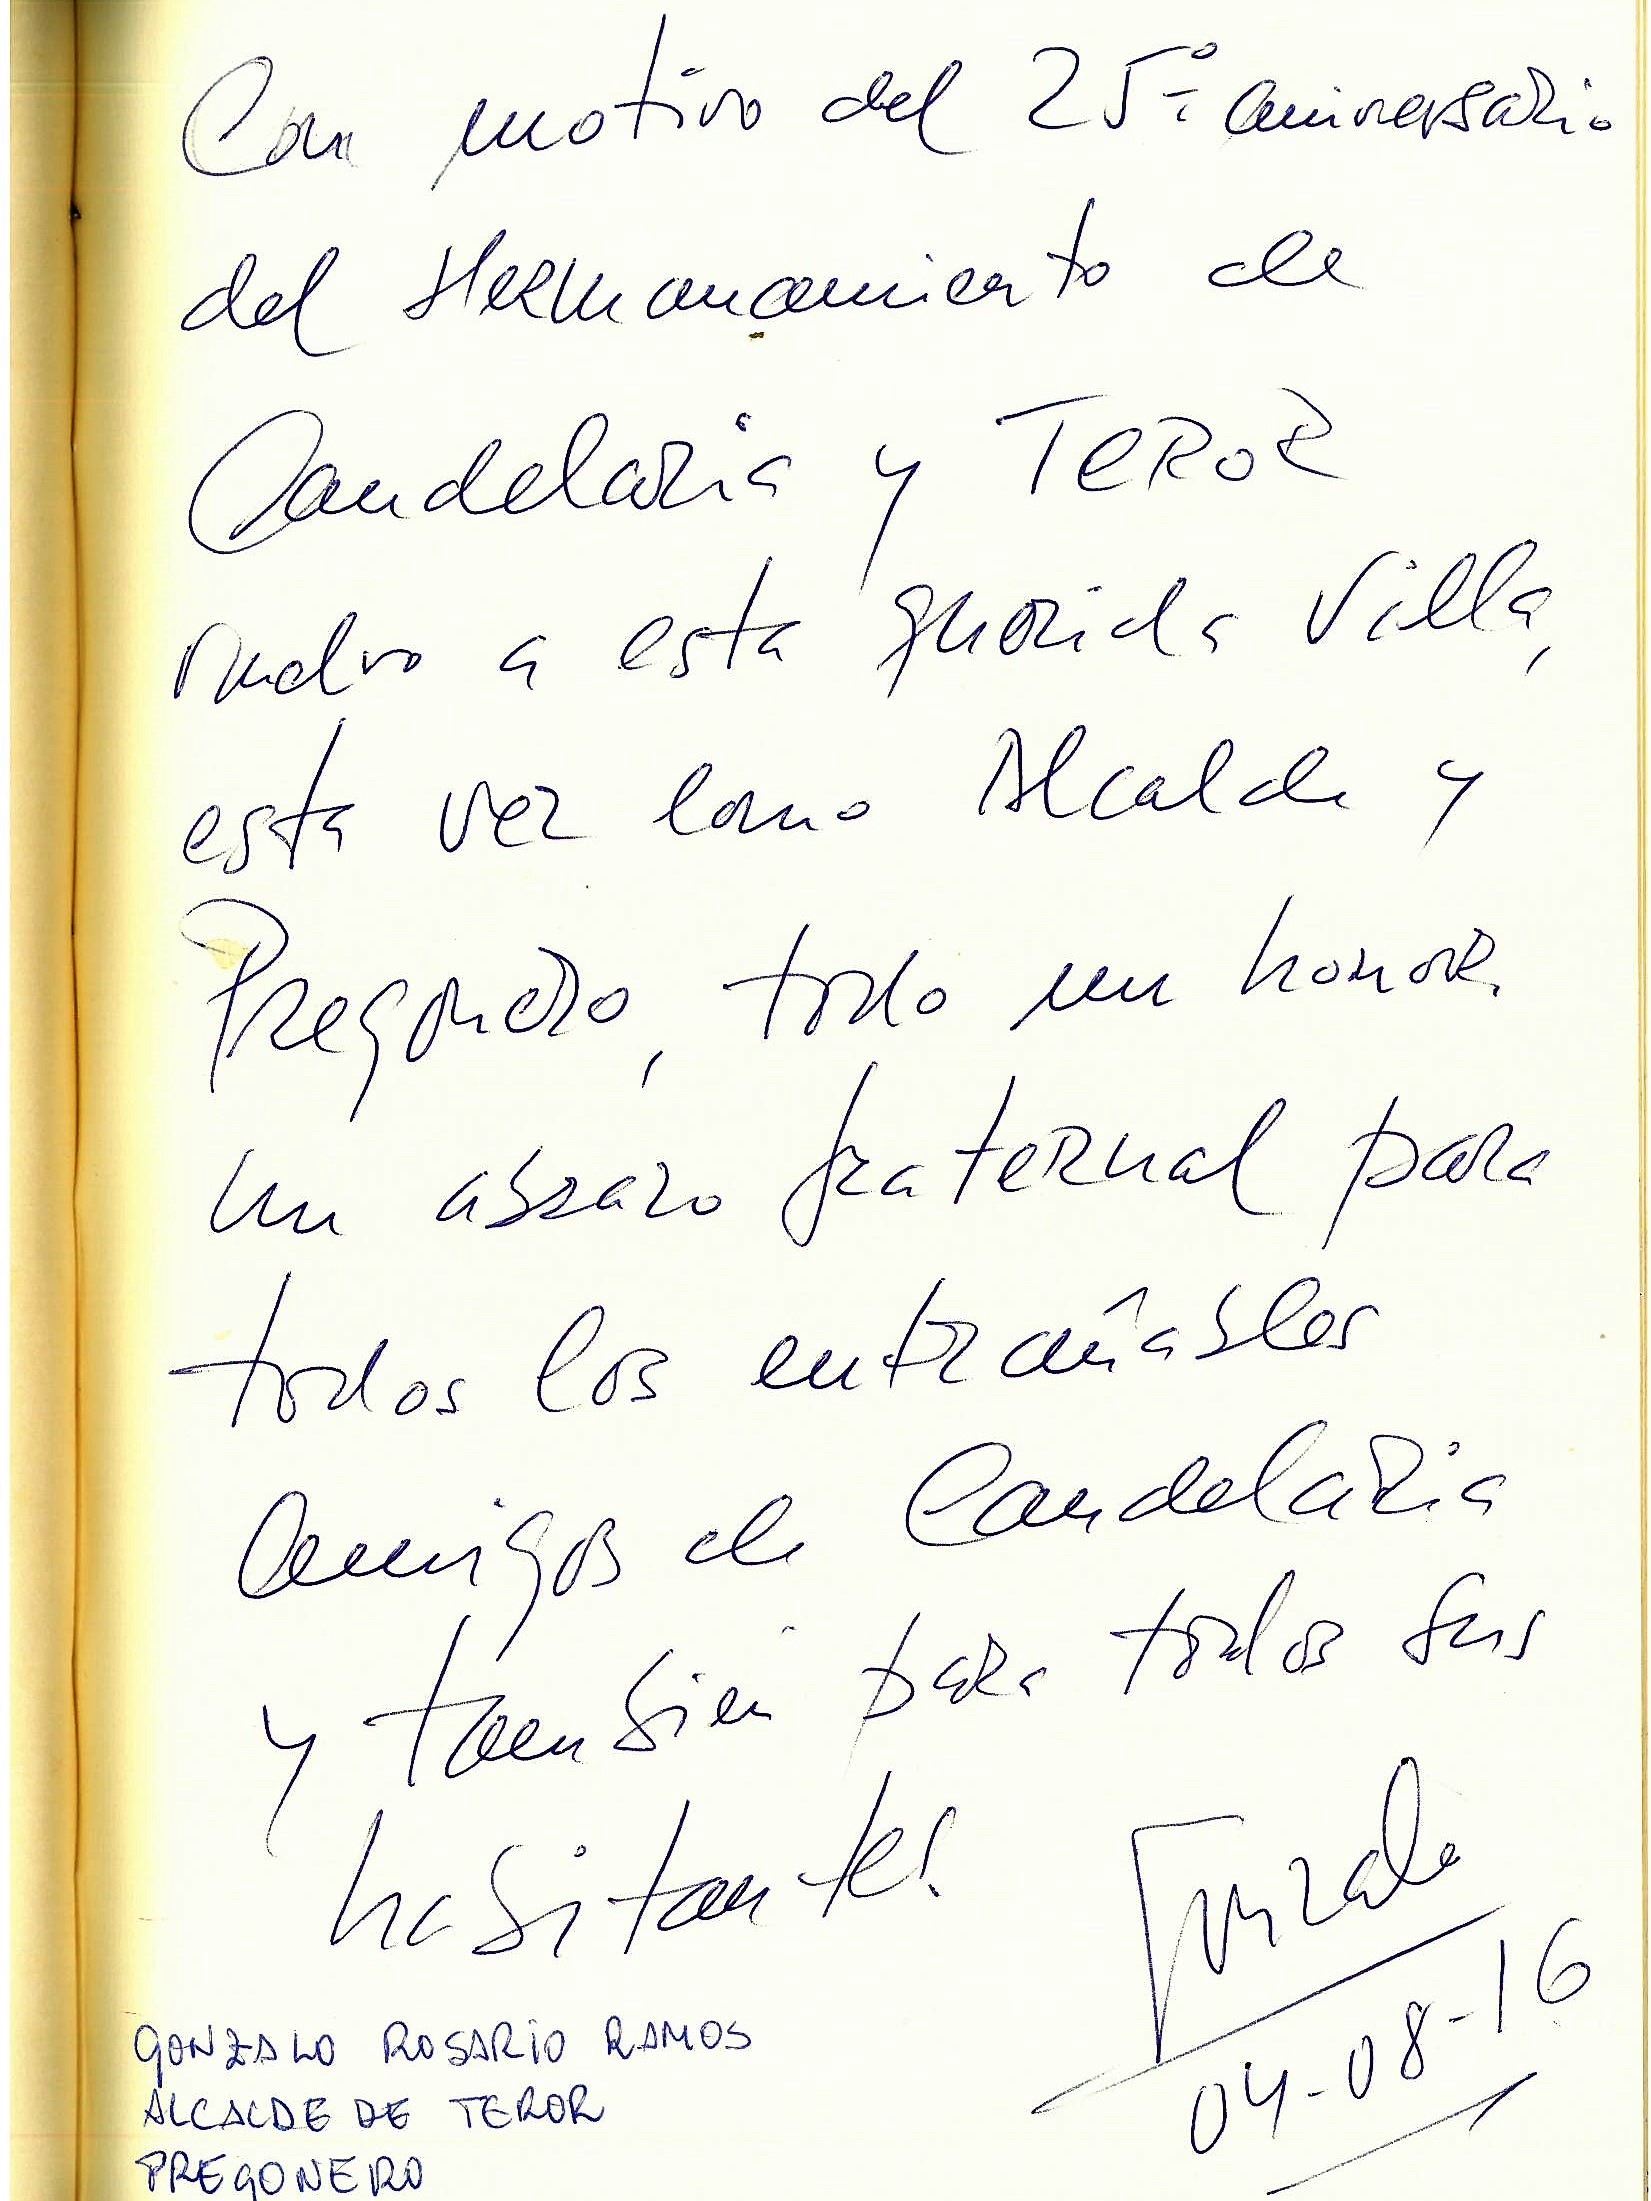 Con motivo del 25º aniversario
del Hermanamiento de
Candelaria y TEROR
vuelvo a esta querida Villa,
esta vez como Alcalde y
Pregonero, todo un honor
un abrazo fraternal para
todos los entrañables
amigos de Candelaria
y también para todos sus
habitantes
Gonzalo
04-08-16
GONZALO ROSARIO RAMOS
ALCALDE DE TEROR
PREGONERO